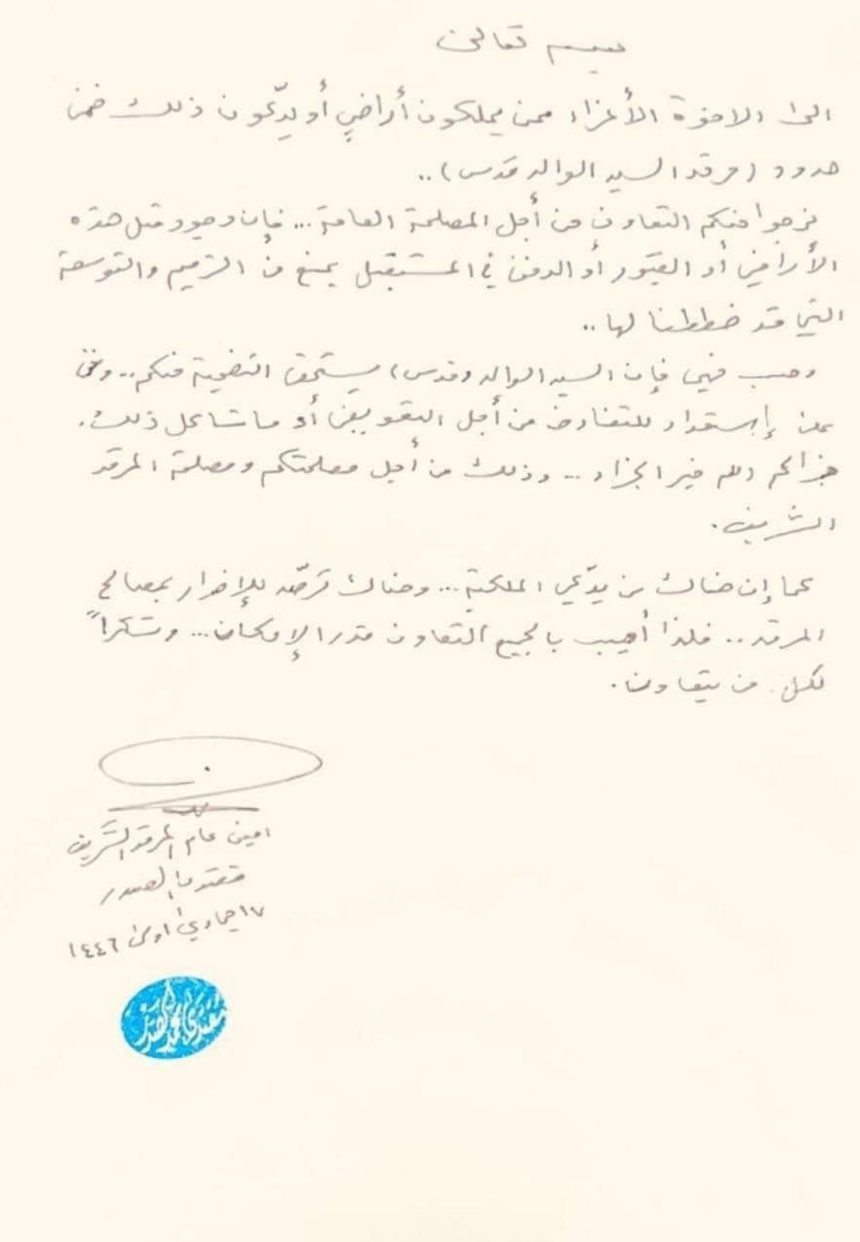 بسمه تعالى
الى الاخوة الأعزاء ممن يملكون أراضٍ أو يدّعون ذلك ضمن
حدود (مرقد السيد الوالد قدس)..
نرجوا منكم التعاون من أجل المصلحة العامة... فإن وجود مثل هذه
الأراضي أو القبور أو الدفن في المستقبل يمنع من الترميم والتوسعة
التي قد خططنا لها..
وحسب فهمي فإن السيد الوالد (قدس) يستحق التضحية منكم.. ونحن
على إستعداد للتفاوض من أجل التعويض أو ما شاكل ذلك.
جزاكم الله خير الجزاء.. وذلك من أجل مصلحتكم ومصلحة المرقد
الشريف.
كما إن هناك من يدّعي الملكية... وهناك ترصّد للإضرار بمصالح
المرقد.. فلذا أهيب بالجميع التعاون قدر الإمكان... وشكراً
لكل من يتعاون.
امين عام المرقد الشريف
مقتدى الصدر
١٧ جمادي اولى ١٤٤٦
مقتدى محمد الصدر